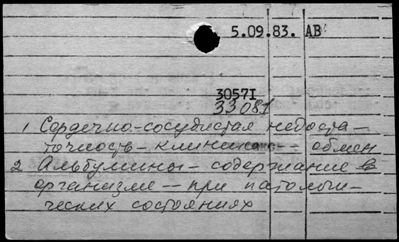 5.09.83. АВ
30571
33081
1 Сердечно-сосудистая недоста-
точность - клиника - обмен
2 Альбумины - содержание в
организме - при патологи-
ческих состояниях